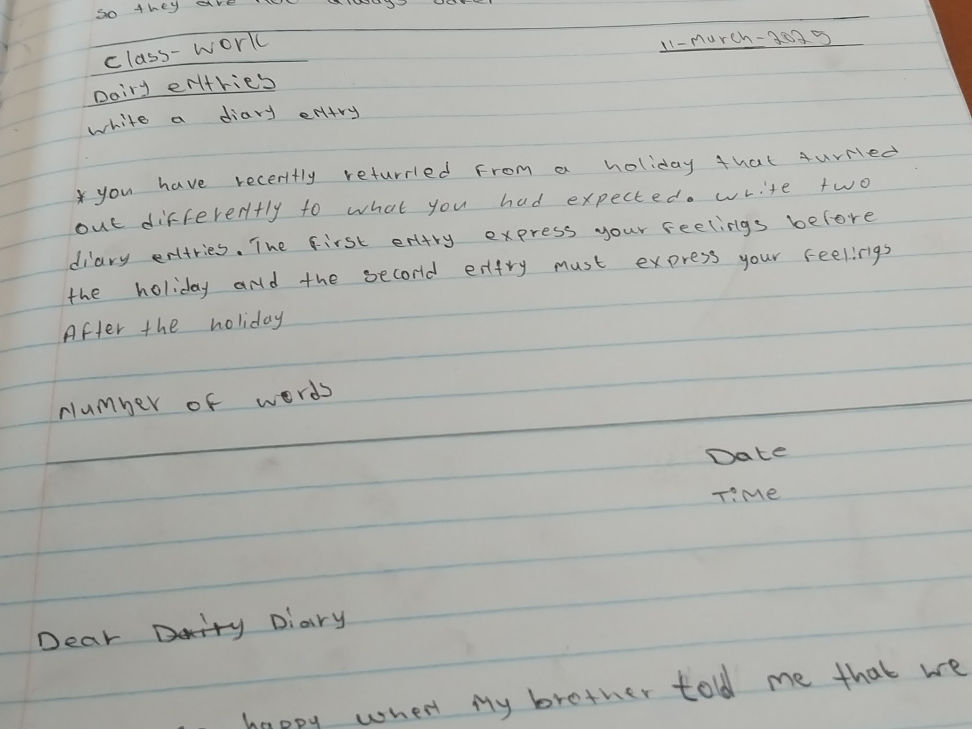 so they are not always
class-work
11-March-2025
Dairy entries
write a diary entry
* you have recently returned from a holiday that turned
out differently to what you had expected. write two
diary entries. The first entry express your feelings before
the holiday and the second entry must express your feelings
After the holiday
Number of words
Date
Time
Dear Dairy Diary
happy when my brother told me that we